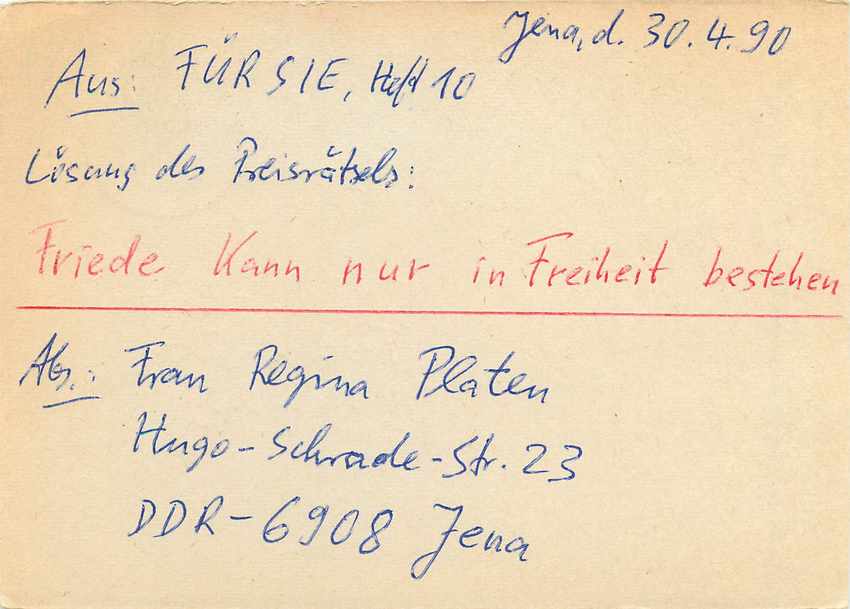 Jena, d. 30.4.90
Aus: FÜR SIE, Heft 10
Lösung des Preisrätsels:
Friede kann nur in Freiheit bestehen
Abs.: Frau Regina Platen
Hugo-Schrade-Str. 23
DDR-6908 Jena